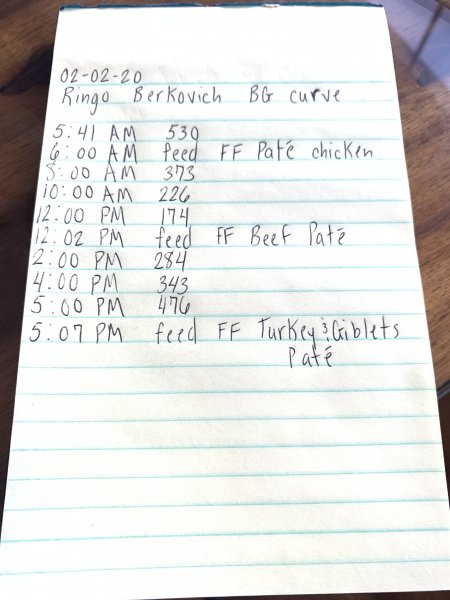 02-02-20
Ringo Berkovich BG curve
5:41 AM 530
6:00 AM feed FF Paté chicken
8:00 AM 373
10:00 AM 226
12:00 PM 174
12:02 PM feed FF Beef Paté
2:00 PM 284
4:00 PM 343
5:00 PM 476
5:07 PM feed FF Turkey & Giblets
Paté